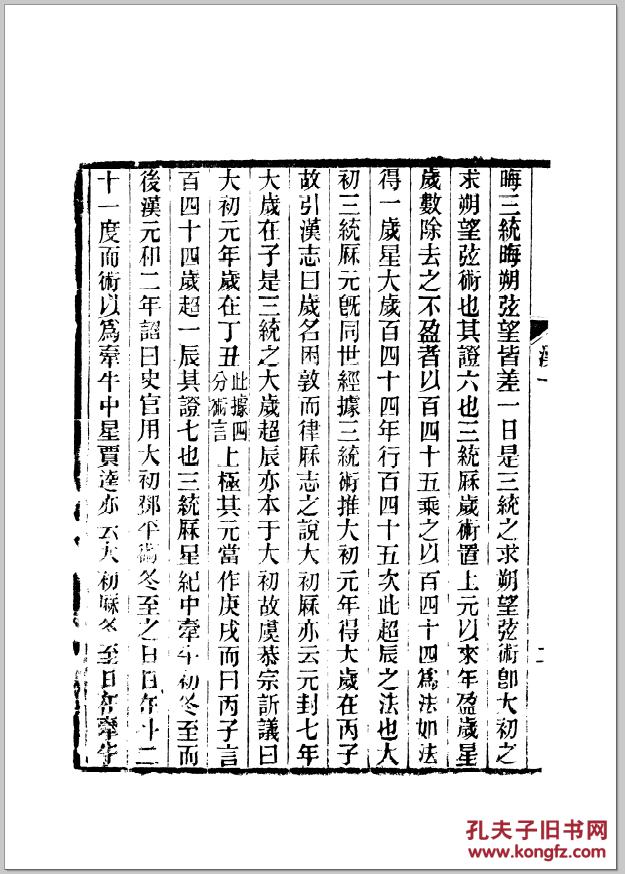 漢一
二
晦三統晦朔弦望皆差一日是三統之求朔望弦術卽大初之
求朔望弦術也其證六也三統厤歲術置上元以來年盈歲星
歲數除去之不盈者以百四十五乘之以百四十四爲法如法
得一歲星大歲百四十四年行百四十五次此超辰之法也大
初三統厤元旣同世經據三統術推大初元年得大歲在丙子
故引漢志曰歲名困敦而律厤志之說大初厤亦云元封七年
大歲在子是三統之大歲超辰亦本于大初故虞恭宗訢議曰
大初元年歲在丁丑此據四分術言上極其元當作庚戌而曰丙子言
百四十四歲超一辰其證七也三統厤星紀中牽牛初冬至而
後漢元和二年詔曰史官用大初鄧平術冬至之日日在斗二
十一度而術以爲牽牛中星賈逵亦云大初厤冬至日在牽牛
孔夫子旧书网
www.kongfz.com